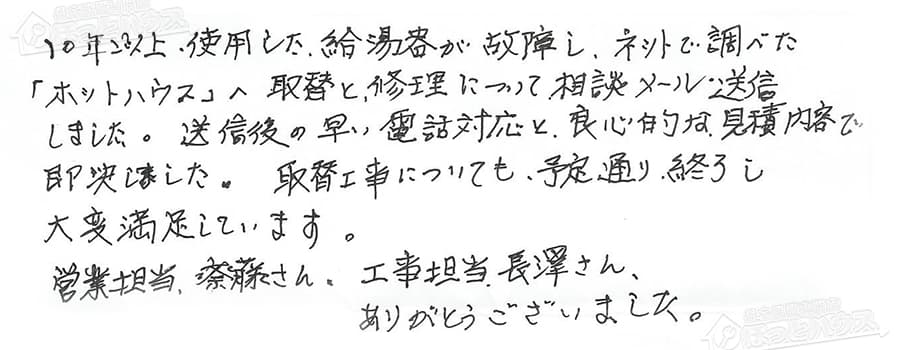 10年以上、使用した、給湯器が故障し、ネットで調べた
「ホットハウス」へ取替と、修理について相談メール送信
しました。送信後の早い電話対応と、良心的な見積内容で
即決しました。取替工事についても、予定通り、終了し
大変満足しています。
営業担当、齋藤さん。工事担当、長澤さん、
ありがとうございました。